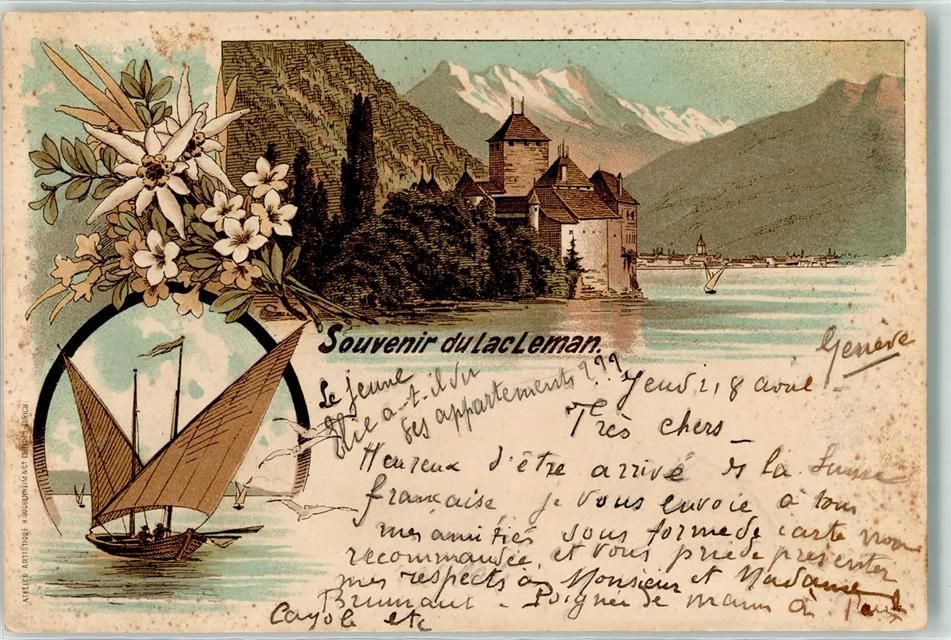 Souvenir du Lac Leman.
Genève
Jeudi, 8 avril
Le jeune
a-t-il vu
ses appartements ???
Très chers
Heureux d'être arrivé ds la Suisse
française je vous envoie à tous
mes amitiés sous forme de carte non
recommandée, et vous prie de presenter
mes respects à Monsieur et Madame
Brumant - Poignée de main à
Cayola etc
ATELIER ARTISTIQUE H. GUGGENHEIM & Cie EDITEURS ZURICH